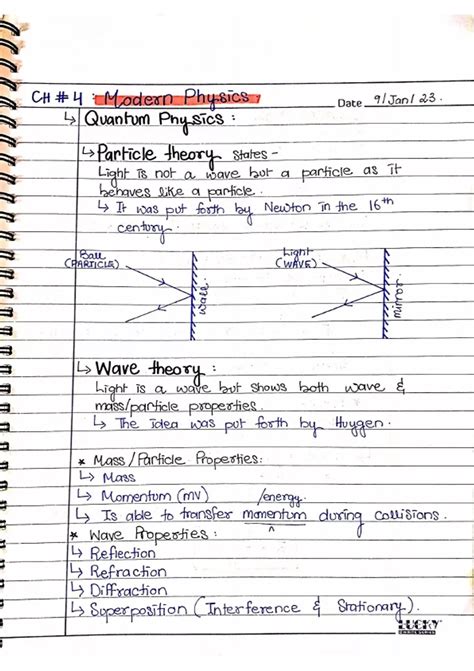 CH # 4 : Modern Physics
Date 9/Jan/23.
↳ Quantum Physics :
↳ Particle theory states -
Light is not a wave but a particle as it
behaves like a particle.
↳ It was put forth by Newton in the 16th
century.
Ball
(PARTICLE)
Wall
Light
(WAVE)
mirror
↳ Wave theory :
Light is a wave but shows both wave &
mass/particle properties.
↳ The idea was put forth by Huygen.
* Mass/Particle Properties:
↳ Mass
↳ Momentum (mv)
/energy.
↳ Is able to transfer momentum during collisions.
^
* Wave Properties:
↳ Reflection
↳ Refraction
↳ Diffraction
↳ Superposition (Interference & Stationary).
LUCKY